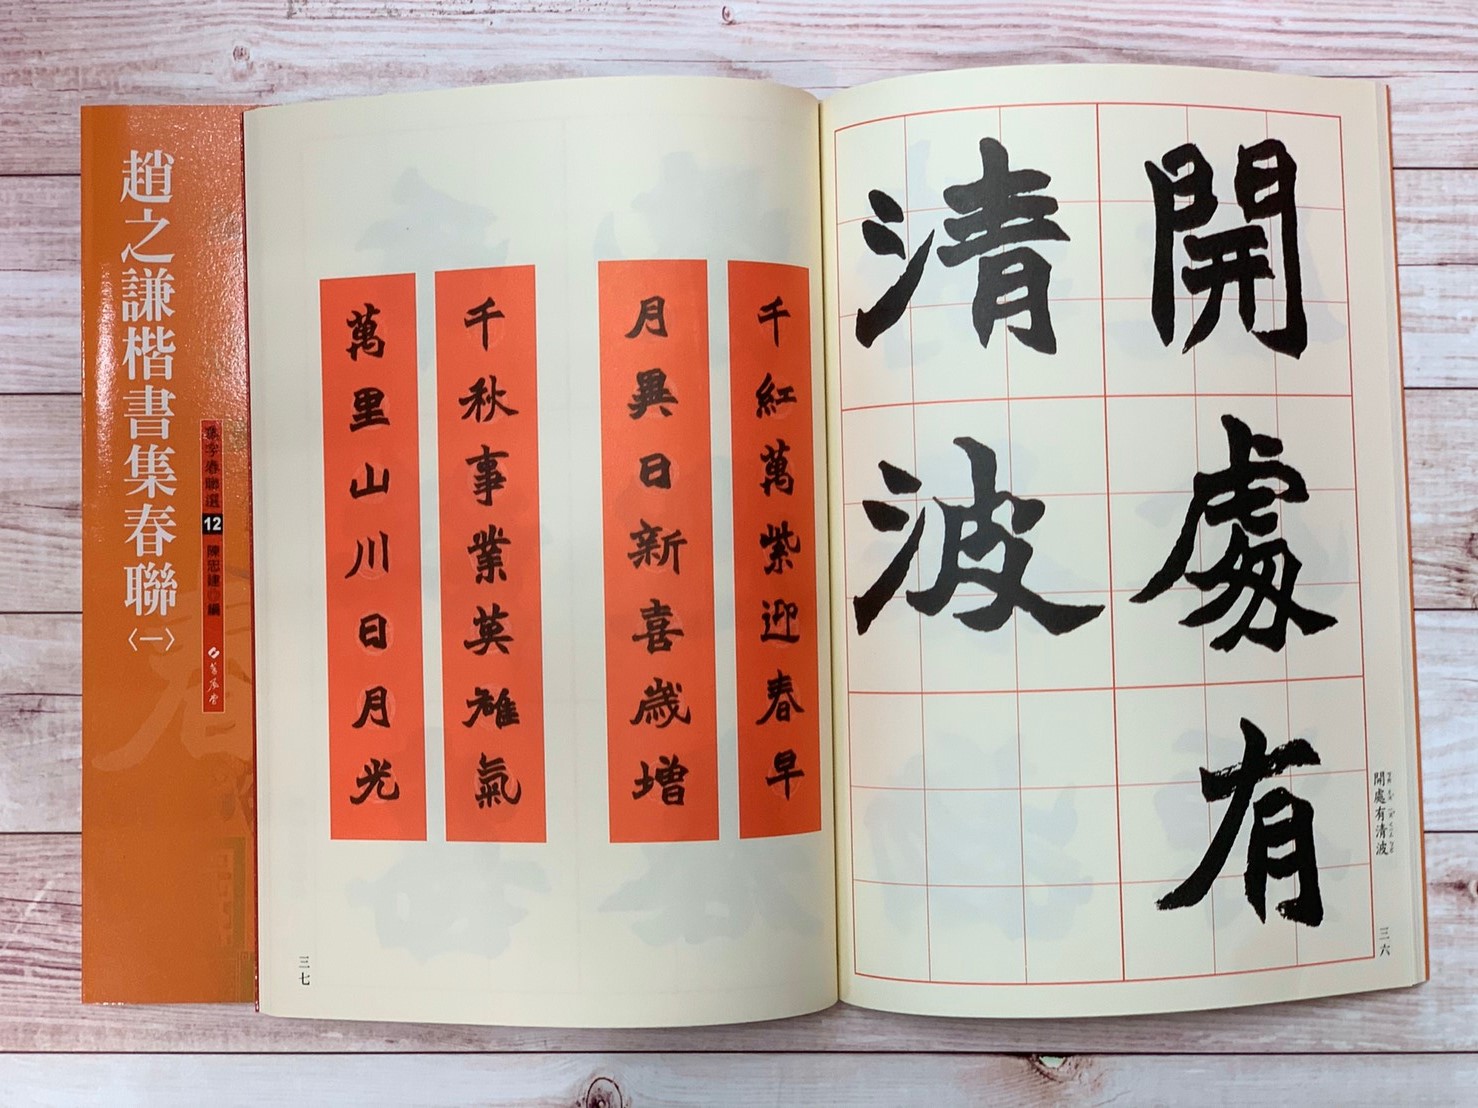 開處有
清波
開處有清波
三六
千紅萬紫迎春早
月異日新喜歲增
千秋事業英雄氣
萬里山川日月光
三七
集字春聯選 12 陳忠建 編
蕙風堂
趙之謙楷書集春聯〈一〉